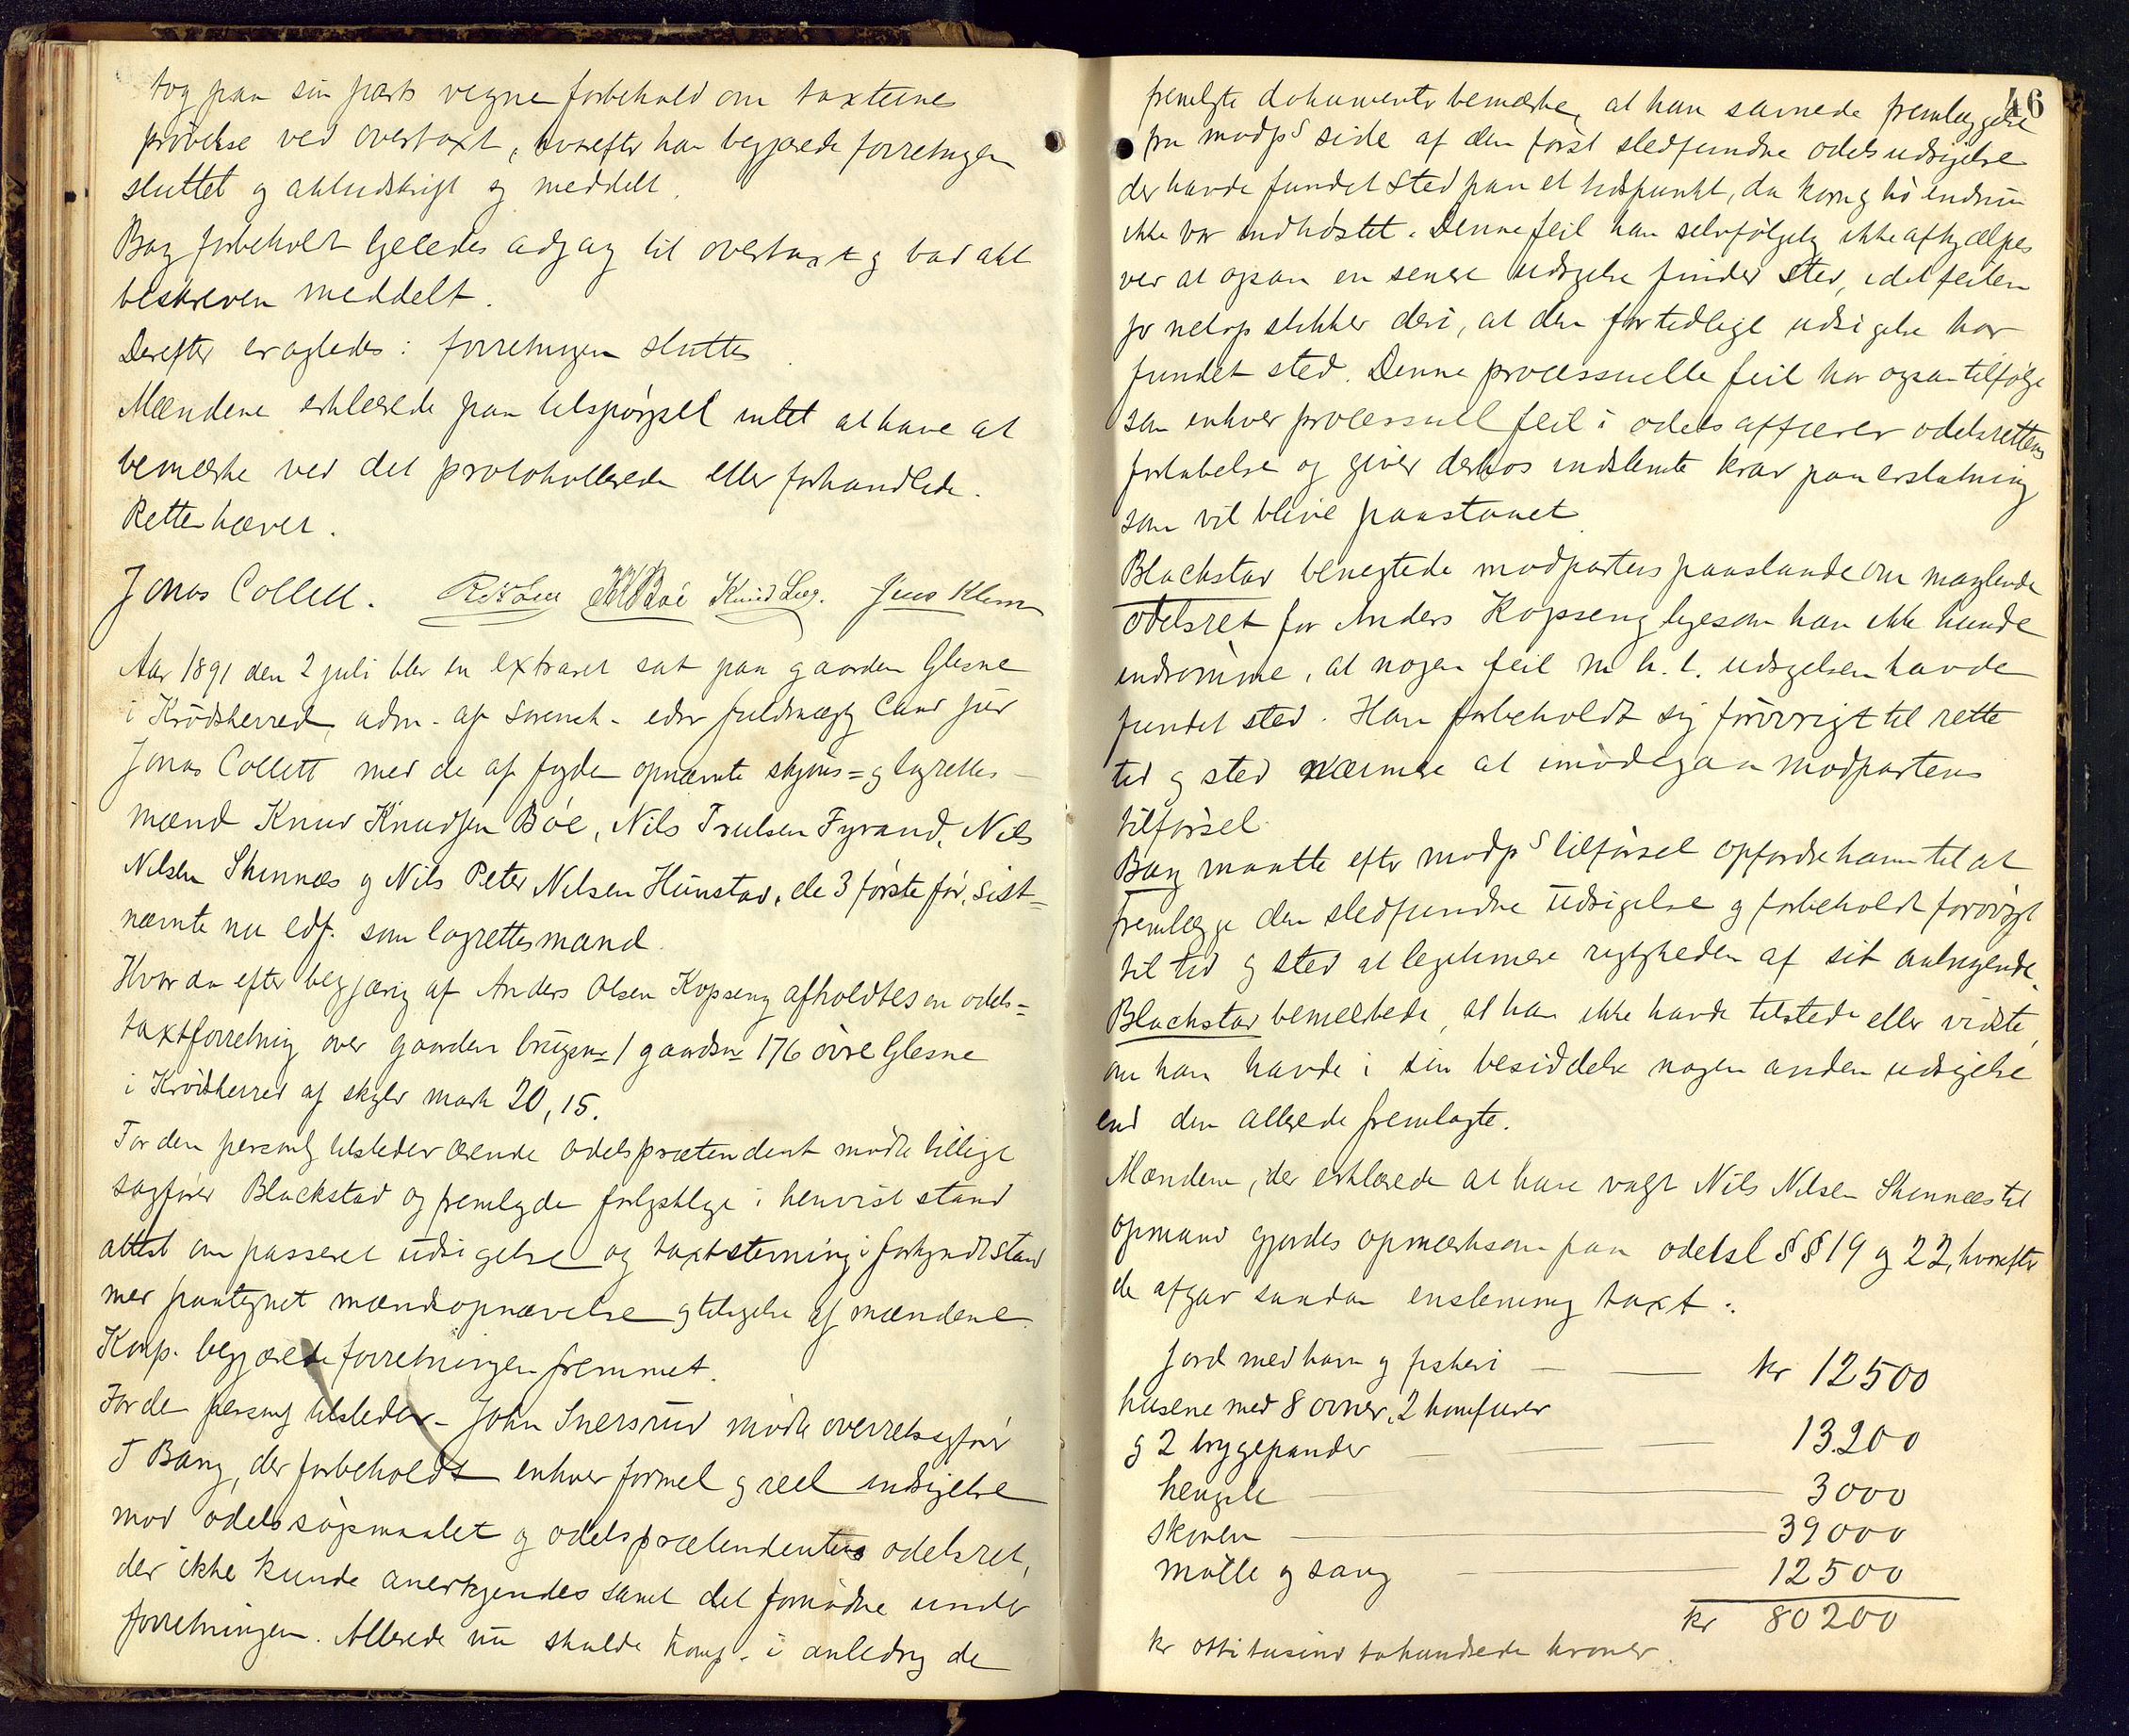 tog paa sin parts vegne forbehold om taxternes
prövelse ved overtaxt, hvorefter han begjærede forretningen
sluttet og aktudskrift sig meddelt.
Bag forbeholdt ligeledes adgang til overtaxt og bad akt
beskreven meddelt.
Derefter eragtedes: forretningen sluttes
Mændene erklærede paa tilspörgsel intet at have at
bemærke ved det protokollerede eller forhandlede.
Retten hævet.
Jonas Collett. KKBöe Knud Jens Klemm
Aar 1891 den 2 juli blev en extraret sat paa gaarden Glesne
i Krödsherred, adm. af sorensk. edsv fuldmægtig Cand jur
Jonas Collett med de af fogden opnævnte skjöns= og lagrettes
mænd Knud Knudsen Böe, Nils Trulsen Fyrand, Nils
Nilsen Skinnes og Nils Peter Nilsen Hunstad, de 3 förste för, sist=
nævnte nu edf. som lagrettesmænd.
Hvor da efter begjæring af Anders Olsen Kopseng afholdtes en odels=
taxtforretning over gaarden brugsnr 1 gaardsnr 176 övre Glesne
i Krödsherred af skyld mark 20,15.
For den personlig tilstedeværende odelsprætendent mödte tillige
sagförer Blackstad og fremlagde forligsklage i henvist stand
attest om passeret udsigelse og taxtstevning i forkyndt stand
med paategnet mændsopnævnelse og tilsigelse af mændene.
Komp. begjærede forretningen fremmet.
For den personlig tilstedev. John Snersrud mödte overretssagförer
J Bang, der forbeholdt enhver formel og reel indsigelse
mod odelssögsmaalet og odelsprætendentens odelsret,
der ikke kunde anerkjendes samt det fornödne under
forretningen. Allerede nu skulde komp. i anledning de
46
fremlagte dokumenter bemærke, at han savnede fremlæggelse
fra modps side af den först stedfundne odelsudsigelse
der havde fundet sted paa et tidspunkt, da korn og hö endnu
ikke var indhöstet. Denne feil kan selvfölgelig ikke afhjælpes
ved at ogsaa en senere udsigelse finder sted, idet feilen
jo netop stikker deri, at den for tidlige udsigelse har
fundet sted. Denne processuelle feil har ogsaa tilfölge
som enhver processuel feil i odelsaffærer odelsrettens
fortabelse og giver derhos indstevnte krav paa erstatning
som vil blive paastanet
Blackstad benegtede modpartens paastande om manglende
odelsret for Anders Kopseng ligesom han ikke kunde
indrömme, at nogen feil m. h. t. udsigelsen havde
fundet sted. Han forbeholdt sig forövrigt til rette
tid og sted nærmere at imödegaa modpartens
tilförsel.
Bang maatte efter modps tilförsel opfordre ham til at
fremlægge den stedfundne udsigelse og forbeholdt forövrigt
til tid og sted at legitimere rigtigheden af sit anbringende.
Blackstad bemærkede, at han ikke havde tilstede eller vidste,
om han havde i sin besiddelse nogen anden udsigelse
end den allerede fremlagte.
Mændene, der erklærede at have valgt Nils Nilsen Skinnes til
opmand gjordes opmærksom paa odelsl §§ 19 og 22, hvorefter
de afgav saadan enstemmig taxt:
Jord med havn og fiskeri kr 12500
husene med 8 ovner, 2 komfurer
og 2 bryggepander 13.200
hengste 3000
skoven 39000
mölle og saug 12500
kr 80200
kr otti tusind tohundrede kroner.